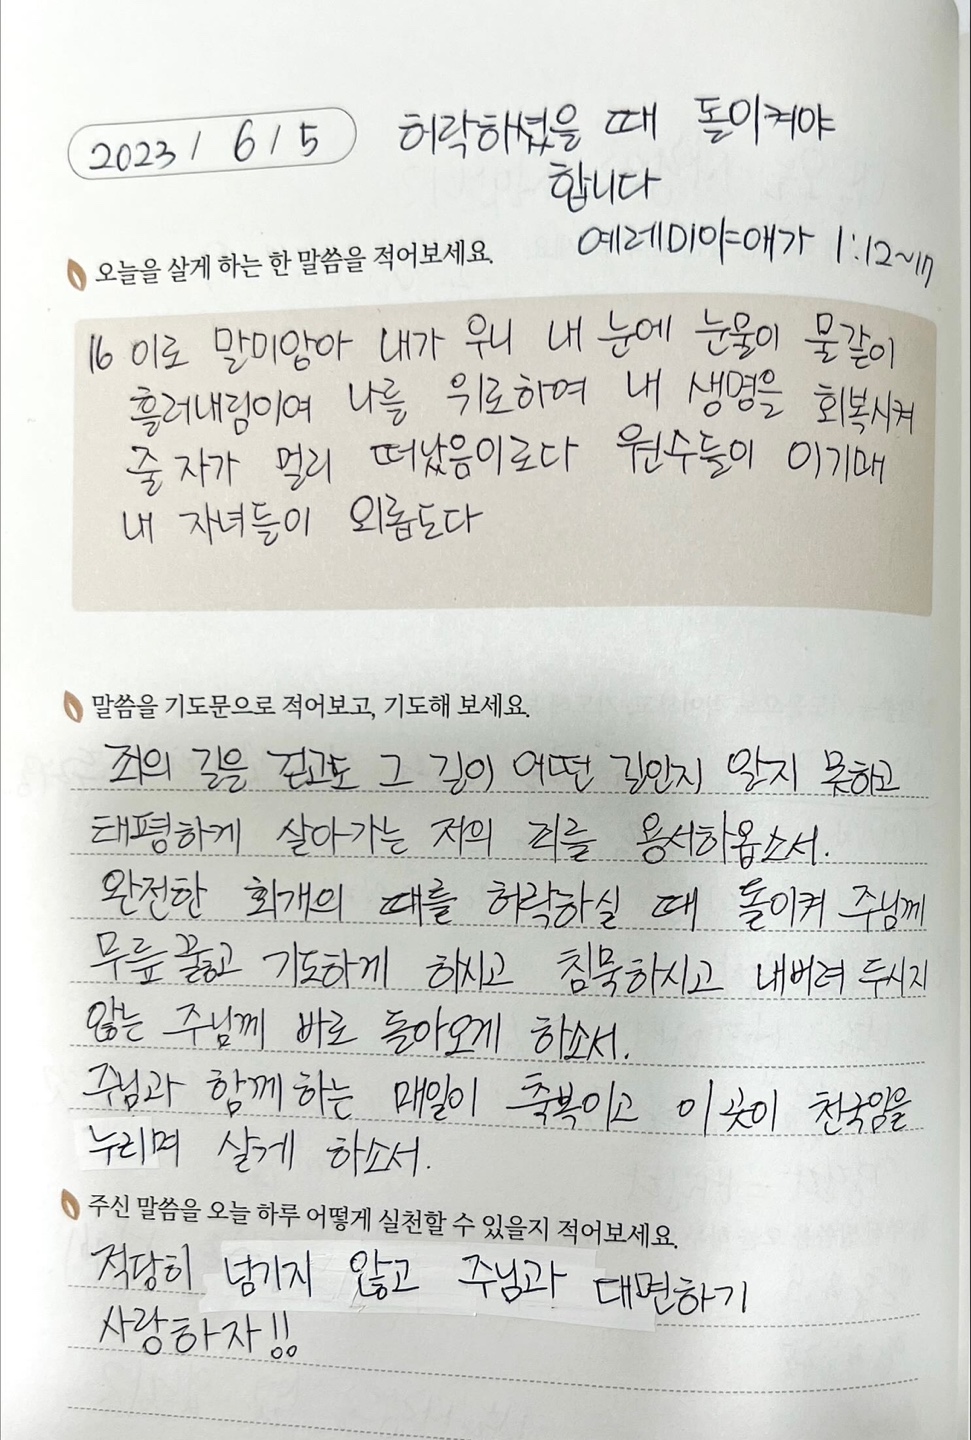 2023 / 6 / 5
허락하셨을 때 돌이켜야
합니다
예레미야애가 1:12~17
오늘을 살게 하는 한 말씀을 적어보세요.
16 이로 말미암아 내가 우니 내 눈에 눈물이 물같이
흘러내림이여 나를 위로하여 내 생명을 회복시켜
줄 자가 멀리 떠났음이로다 원수들이 이기매
내 자녀들이 외롭도다
말씀을 기도문으로 적어보고, 기도해 보세요.
죄의 길을 걷고도 그 길이 어떤 길인지 알지 못하고
태평하게 살아가는 저의 죄를 용서하옵소서.
완전한 회개의 때를 허락하실 때 돌이켜 주님께
무릎 꿇고 기도하게 하시고 침묵하시고 내버려 두시지
않는 주님께 바로 돌아오게 하소서.
주님과 함께 하는 매일이 축복이고 이 곳이 천국임을
누리며 살게 하소서.
주신 말씀을 오늘 하루 어떻게 실천할 수 있을지 적어보세요.
적당히 넘기지 않고 주님과 대면하기
사랑하자!!